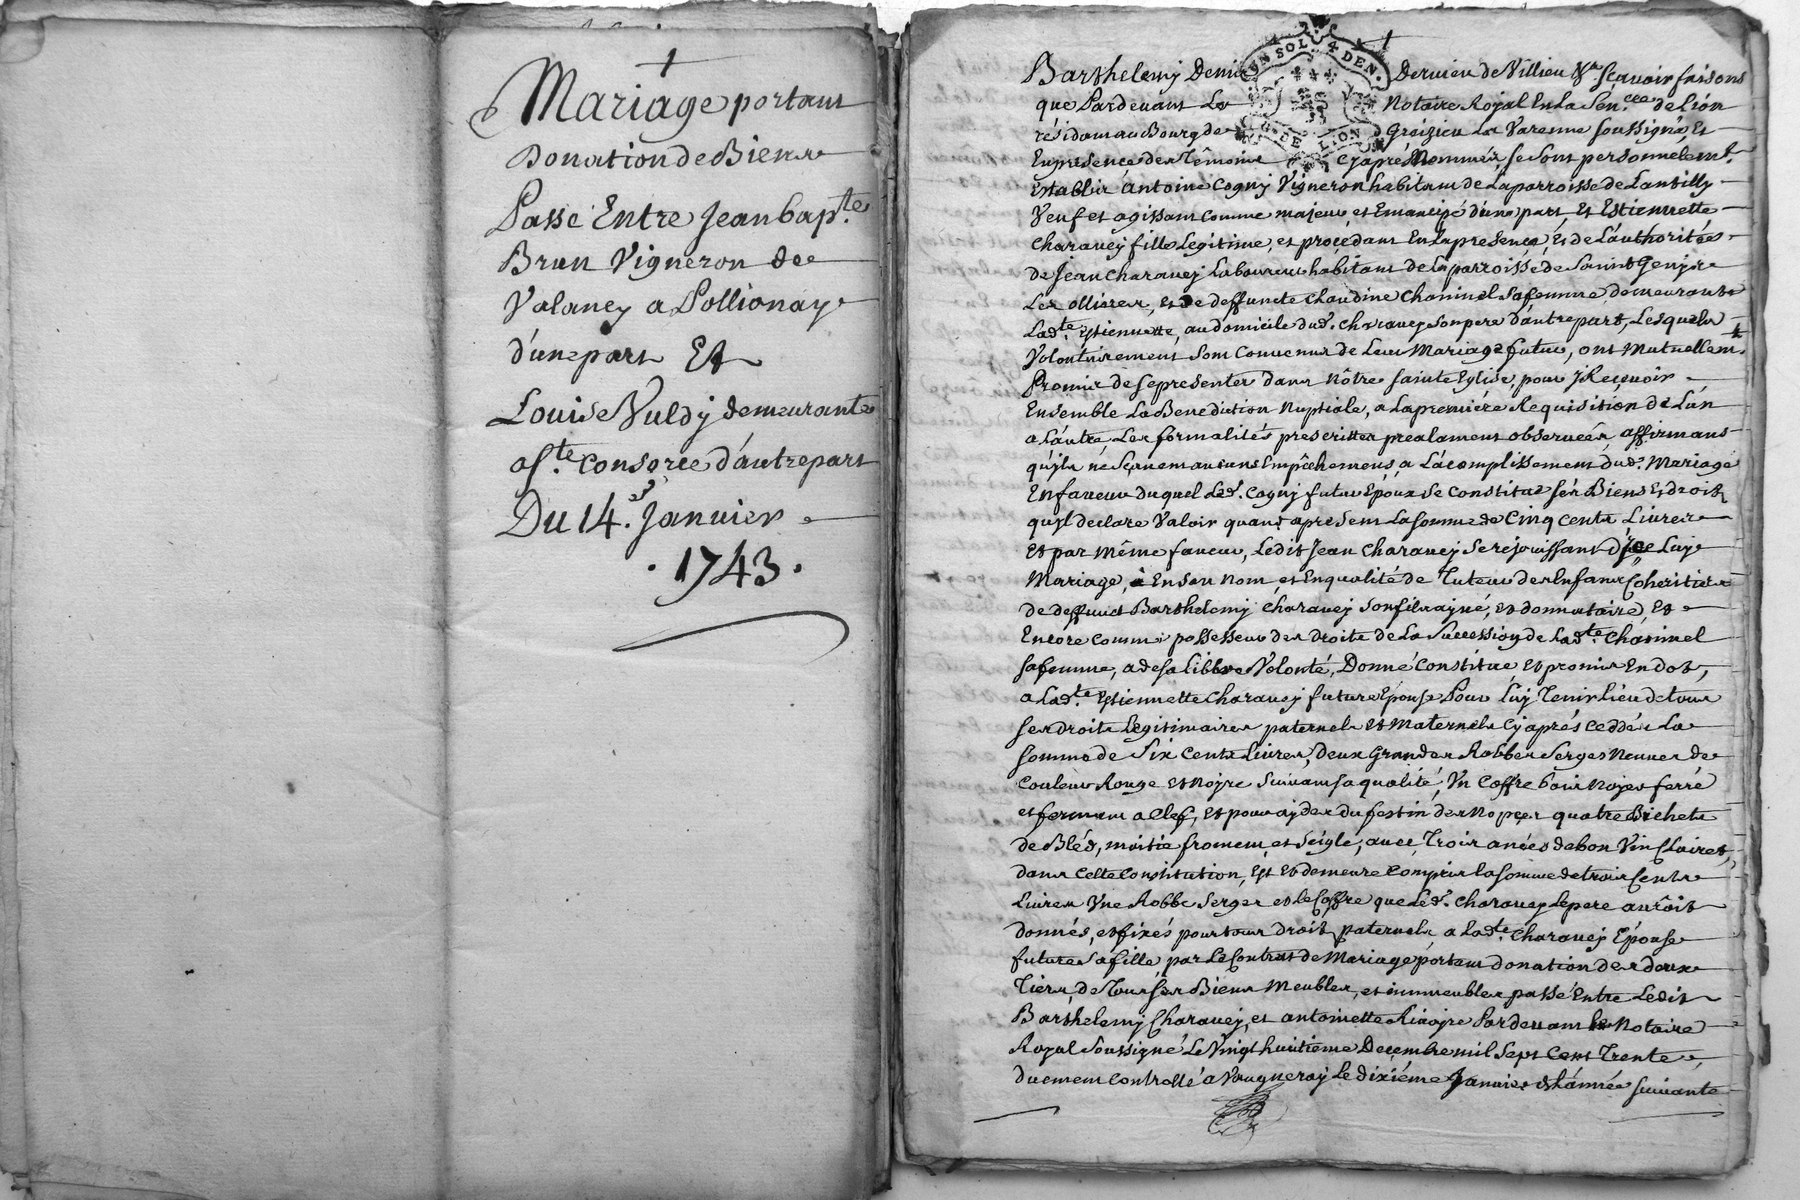 Mariage portant
Donation de Biens
Passé Entre Jean bap.te
Brun Vigneron de
Valancy a Pollionay
d'une part Et
Louise Vuldy demeurante
a S.te Consorce d'autre part
Du 14.e Janvier
. 1743 .
UN SOL 4 DEN.
G. DE LION
Barthelemy Deni Dervieu de Villieu &a Sçavoir faisons
que Pardevant Le Notaire Royal En la Sén.cée de Lion
résidant au Bourg de Gréizieu La Varenne soussigné, Et
En presence des Témoins Cyaprés Nommés, se sont personnelem.t
Establis antoine Cogny Vigneron habitant de La parroisse de Lantilly
Veuf et agissant comme majeur et Emancipé d'une part Et Estiennette
Charavey fille Legitime, et procedant En La presence, Et de L'authorité
de Jean Charavey Laboureur habitant de La parroisse de Saint Genis
Les ollieres, et de deffuncte Claudine Chaninel sa femme demeurante
Lad.te Estiennette, au domicile dud. Charavey son pere d'autre part, Lesquels
Volontairement sont Convenus de Leur Mariage futur, ont Mutuellem.t
Promis de se presenter dans nôtre sainte Eglise, pour y Reçevoir
Ensemble La Benediction Nuptiale, a La premiére Requisition de L'un
a L'autre Les formalités prescrittes prealament observées, affirmans
qu'ils né sçavent aucuns Empêchemens, a L'acomplissement dud. Mariage
En faveur duquel Led. Cogny futur Epoux se constitue sés Biens Et droits
qu'il declare Valoir quant apresent La somme de Cinq Cents Livres
Et par même faveur, Ledit Jean Charavey se réjouissant d'jce Luy
Mariage, En son nom et En qualité de Tuteur des Enfans Coheritiers
de deffunct Barthelemy Charavey son fils ayné, et donnataire, Et
Encore comme possesseur des droits de La Succession de Lad.te Chaninel
sa femme, a de sa libbre Volonté, Donné Constitué, Et promis En dot,
a Lad.te Estiennette Charavey future Epouse Pour Luy Tenir lieu de tous
ses droits Legitimaires paternels Et Maternels Cyaprés Ceddés La
somme de Six Cents Livres, Deux Grandes Robbes Serges Neuves de
Couleur Rouge et Noire suivant sa qualité, Un Coffre bois Noyer ferré
et fermant a Clef, Et pour ayder du festin des Nopçes quatre Bichets
de Bléd, moitié froment, et Seigle, avec Trois anées de bon Vin Clairet,
dans Cette Constitution, Est Et demeure Compris la somme de trois Cents
Livres Une Robbe Serge et le Coffre que Led. Charavey Le pere auroit
donnés, et fixés pour tous droits paternels a Lad.te Charavey Epouse
future sa fille par Le Contrat de Mariage portant donation des deux
Tiers, de Tous ses Biens Meubles, et immeubles passé Entre Ledit
Barthelemy Charavey, et antoinette Rivoire Pardevant Le Notaire
Royal Soussigné Le Vingt huitieme Decembre mil Sept Cent Trente,
duement Controllé a Vaugneray Le dixiéme Janvier de L'année suivante